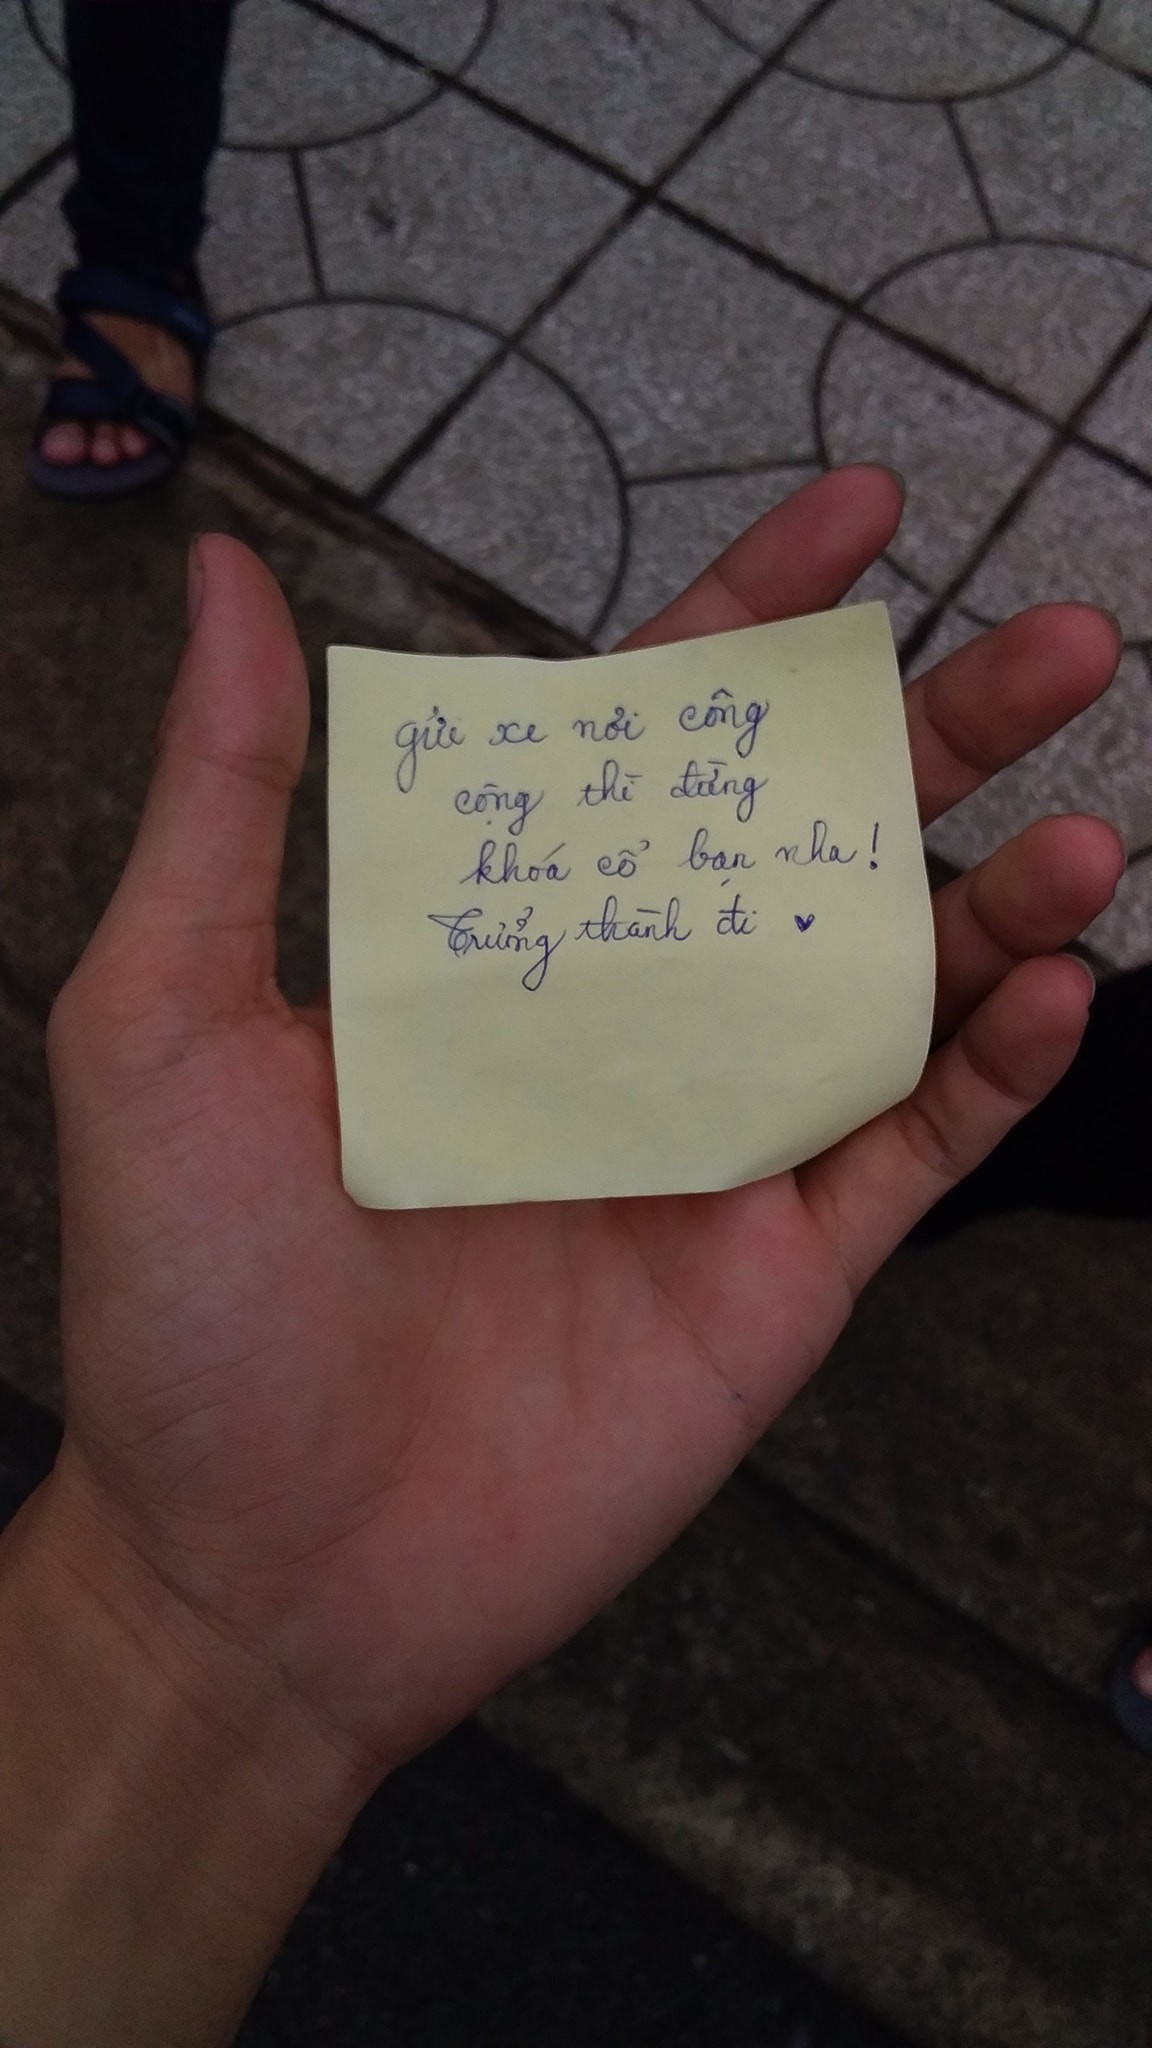 gửi xe nơi công
cộng thì đừng
khóa cổ bạn nha!
Trưởng thành đi ♥